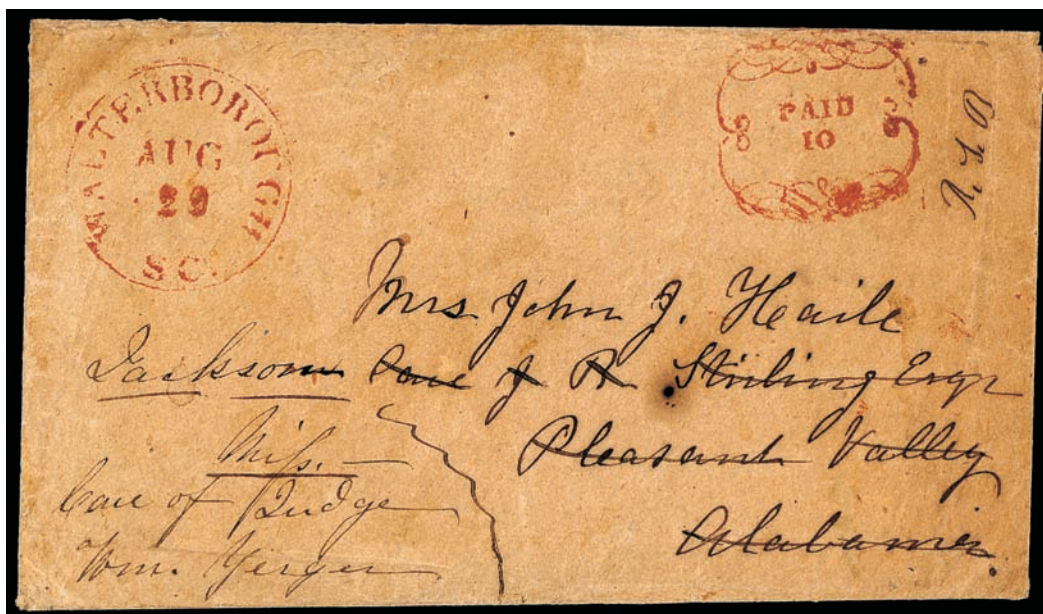 WALTERBOROUGH
AUG
29
S C.
PAID
10
Mrs John J. Haile
Care J R Stirling Esqr
Pleasant Valley
Alabama
Jackson
Miss.
Care of Judge
Wm. Yerger